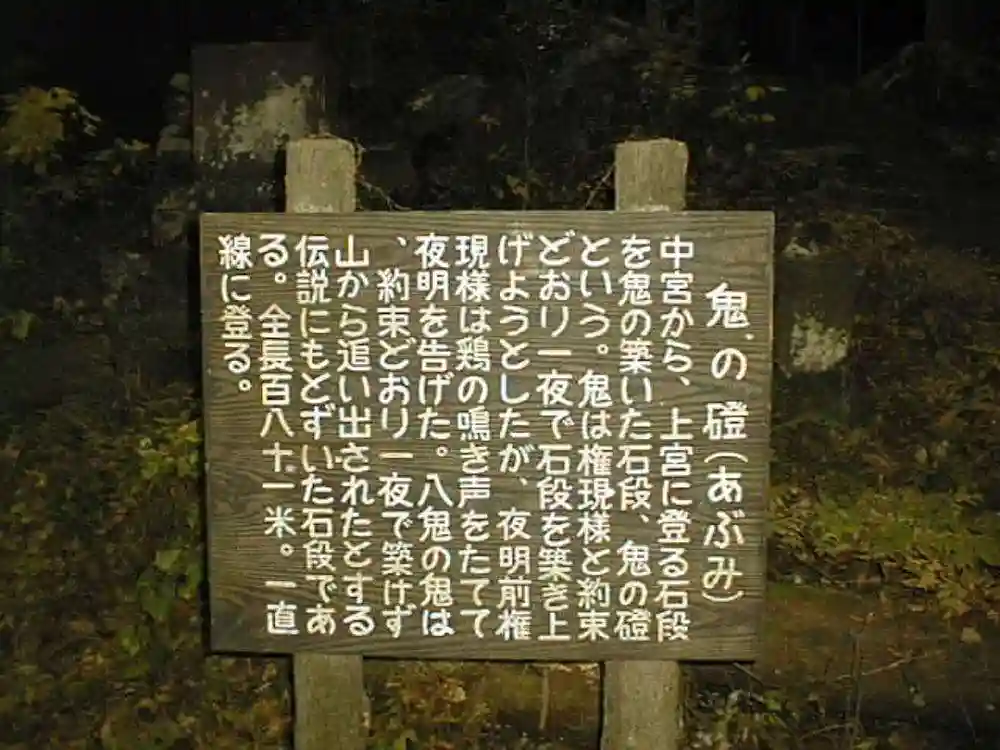 鬼の磴(あぶみ)
中宮から、上宮に登る石段
を鬼の築いた石段、鬼の磴
という。鬼は権現様と約束
どおり一夜で石段を築き上
げようとしたが、夜明前権
現様は鶏の鳴き声をたてて
夜明を告げた。八鬼の鬼は
、約束どおり一夜で築けず
山から追い出されたとする
伝説にもとずいた石段であ
る。全長百八十一米。一直
線に登る。